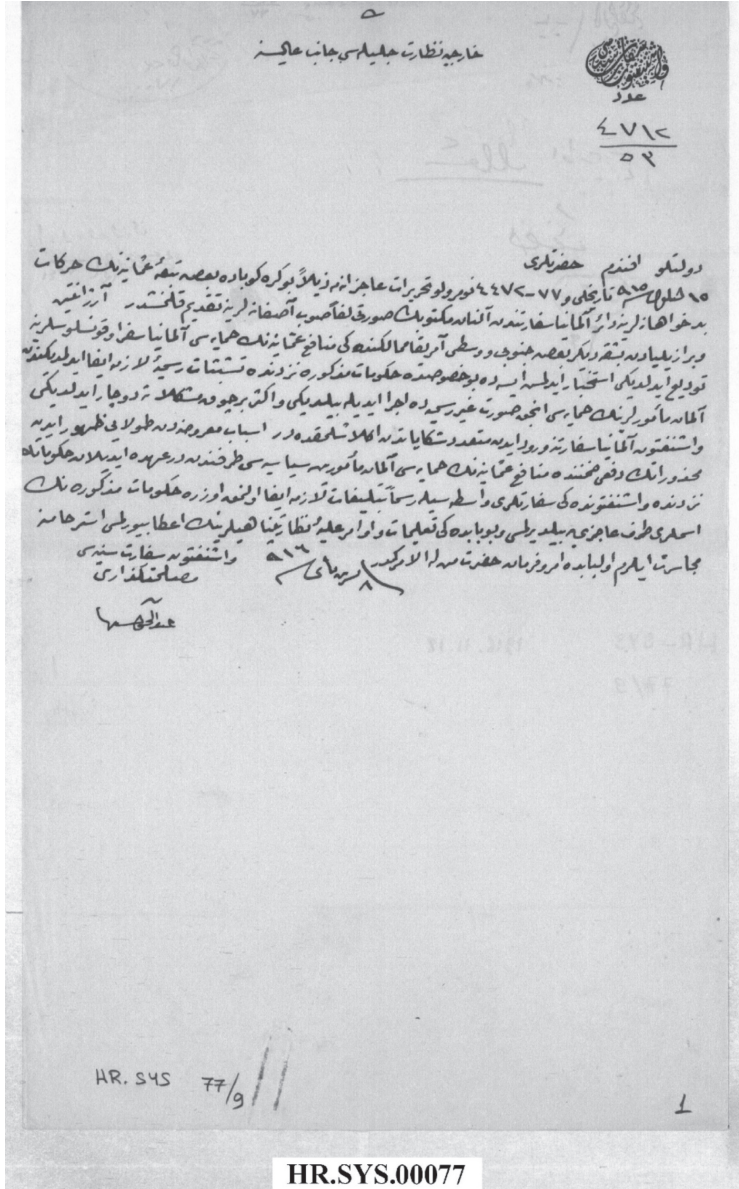 خارجيه نظارت جليله سى جانب عاليسنه
واشنغتون سفارت سنيه سى
عدد
٤٧١٢
٥٣
دولتلو افندم حضرتلرى
١٥ ايلول ٩١٥ تاريخلى و ٧٧-٤٤٧٢ نومرولو تحريرات عاجزانه مه ذيلاً بو كره كوباده بعض تبعهٔ عثمانيه نك حركات
بدخواهانه لرينه دائر آلمانيا سفارتندن آلنان مكتوبك صورتى لفاً صوب آصفانه لرينه تقديم قلنمشدر آرژانتين
وبرازيليادن بشقه ديكر بعض جنوبى ووسطى آمريقا ممالكنده كى منافع عثمانيه نك حمايه سى آلمانيا سفرا وقونسلوسلرينه
توديع ايدلديكى استخبار ايدلمش ايسه ده بو خصوصده حكومات مذكوره نزدنده تشبثات رسميهٔ لازمه ايفا ايدلمديكندن
آلمان مأمورلرينك حمايه سى انجق صورت غير رسميه ده اجرا ايديله بيلديكى واكثر برچوق مشكلاته دوچار ايدلديكى
واشنغتون آلمانيا سفارتنه ورود ايدن متعدد شكاياتدن اكلاشلمقده در اسباب معروضه دن طولايى ظهور ايدن
محذوراتك دفعى ضمننده منافع عثمانيه نك حمايه سى آلمان مأمورين سياسيه سى طرفندن درعهده ايديلان حكوماتك
نزدنده واشنغتونده كى سفارتلرى واسطه سيله رسماً تبليغات لازمه ايفا اولنمق اوزره حكومات مذكوره نك
اسملرى طرف عاجزى يه بيلديرلمسى وبو بابده كى تعليمات و اوامر عليهٔ نظارتپناهيلرينك اعطا بيورلمسى استرحامنه
مجاسرت ايلرم اولبابده امر وفرمان حضرت من له الامركدر ٨ تشرين ثانى ٩١٦
واشنغتون سفارت سنيه سى
مصلحتكذارى
عبدالحق حسين
HR. SYS 77/9
1
HR.SYS.00077